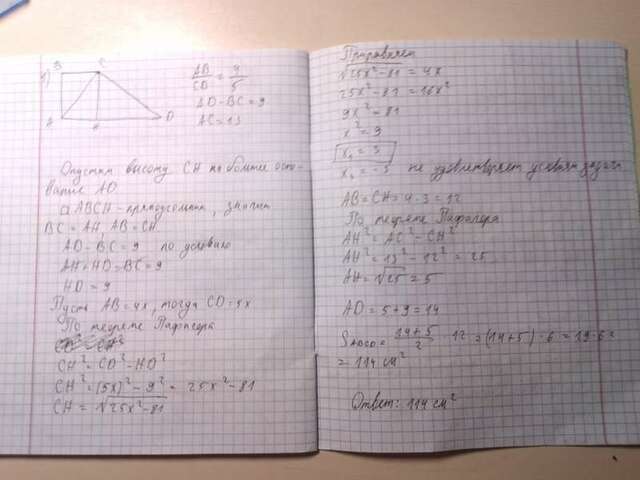 1)
B C
A H D
AB/CD = 4/5
AD-BC=9
AC=13
Опустим высоту CH на большее осно-
вание AD
ABCH-прямоугольник, значит
BC=AH, AB=CH
AD-BC=9 по условию
AH+HD-BC=9
HD=9
Пусть AB=4x, тогда CD=5x
По теореме Пифагора
CH²=CD²-HD²
CH²=(5x)²-9²=25x²-81
CH=√25x²-81
Приравняем
√25x²-81=4x
25x²-81=16x²
9x²=81
x²=9
x₁=3
x₂=-3 не удовлетворяет условию задачи
AB=CH=4·3=12
По теореме Пифагора
AH²=AC²-CH²
AH²=13²-12²=25
AH=√25=5
AD=5+9=14
SABCD=14+5/2·12=(14+5)·6=19·6=
=114 см²
Ответ: 114 см²